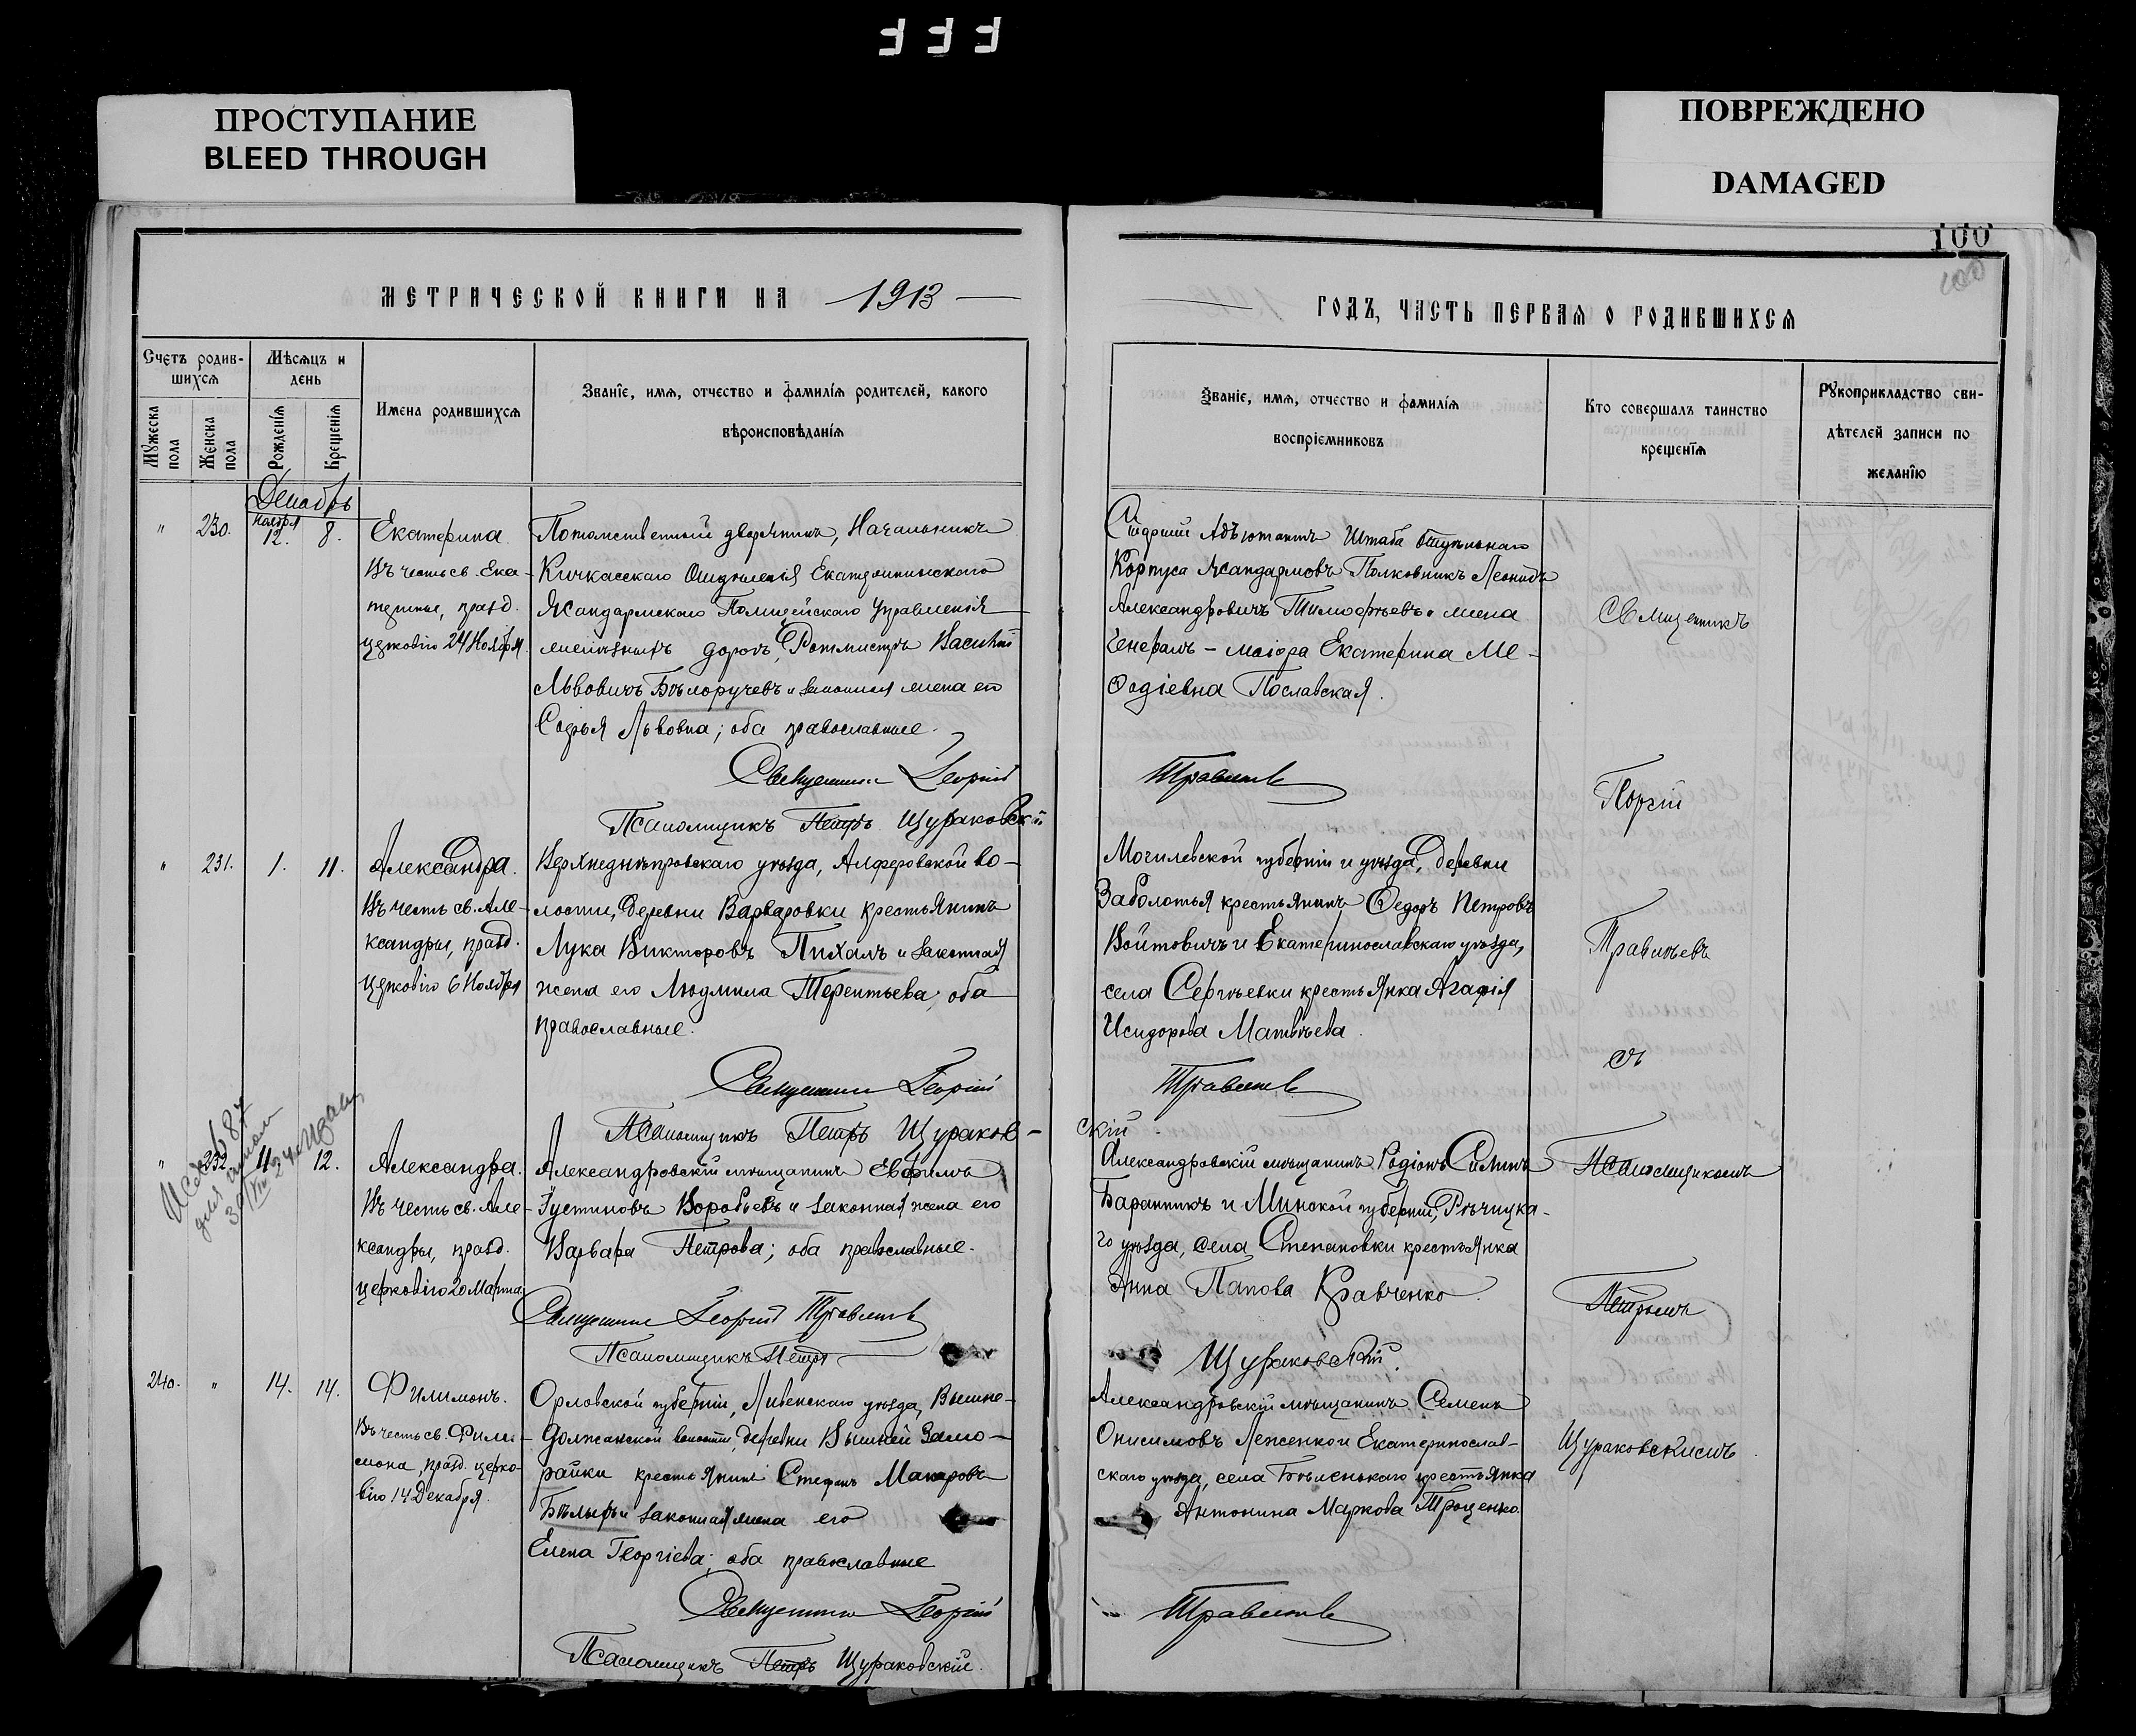 ПРОСТУПАНИЕ
BLEED THROUGH
ПОВРЕЖДЕНО
DAMAGED
100
100
МЕТРИЧЕСКОЙ КНИГИ НА 1913
ГОДЪ, ЧАСТЬ ПЕРВАЯ О РОДИВШИХСЯ
Счетъ родив-
шихся
Мѣсяцъ и
день
Мужеска пола
Женска пола
Рожденія
Крещенія
Имена родившихся
Званіе, имя, отчество и фамилія родителей, какого
вѣроисповѣданія
Званіе, имя, отчество и фамилія
воспріемниковъ
Кто совершалъ таинство
крещенія
Рукоприкладство сви-
дѣтелей записи по
желанію
Декабрь
" 230. Ноября 12. 8.
Екатерина
Въ честь св. Ека-
терины, празд.
церковію 24 Ноября.
Потомственный дворянинъ, Начальникъ
Кичкасскаго Отдѣленія Екатерининскаго
Жандармскаго Полицейскаго Управленія
желѣзныхъ дорогъ, Ротмистръ Василій
Львовичъ Бѣлоручевъ и законная жена его
Софья Львовна; оба православные.
Священникъ Георгій
Псаломщикъ Петръ Щураковскій
Старшій Адъютантъ Штаба Отдѣльнаго
Корпуса Жандармовъ Полковникъ Леонидъ
Александровичъ Тимофѣевъ и жена
Генералъ-маіора Екатерина Ме-
ѳодіевна Пославская.
Травинѣевъ
" 231. 1. 11.
Александра.
Въ честь св. Але-
ксандры, празд.
церковію 6 Ноября
Верхнеднѣпровскаго уѣзда, Алферовской во-
лости, Деревни Варваровки крестьянинъ
Лука Викторовъ Пихалъ и законная
жена его Людмила Терентьева; оба
православные.
Священникъ Георгій
Псаломщикъ Петръ Щураков-
Могилевской губерніи и уѣзда, Деревни
Заболотья крестьянинъ Ѳедоръ Петровъ
Войтовичъ и Екатеринославскаго уѣзда,
села Сергѣевки крестьянка Агафія
Исидорова Матвѣева.
Травинѣевъ
скій.
" 232. 11. 12.
Александра.
Въ честь св. Але-
ксандры, празд.
церковію 20 Марта.
Александровскій мѣщанинъ Евфимъ
Іустиновъ Воробьевъ и законная жена его
Варвара Петрова; оба православные.
Священникъ Георгій Травинѣевъ
Псаломщикъ Петръ
Александровскій мѣщанинъ Родіонъ Симинъ
Баранникъ и Минской губерніи, Рѣчицка-
го уѣзда, села Степановки крестьянка
Анна Панова Кравченко.
Щураковскій.
240. " 14. 14.
Филимонъ.
Въ честь св. Фили-
мона, празд. церко-
вію 14 Декабря.
Орловской губерніи, Ливенскаго уѣзда, Вышне-
Должанской волости, деревни Вышней Замо-
райки крестьянинъ Стефанъ Макаровъ
Бѣлыхъ и законная жена его
Елена Георгіева; оба православные
Священникъ Георгій
Псаломщикъ Петръ Щураковскій.
Александровскій мѣщанинъ Семенъ
Онисимовъ Леженко и Екатеринослав-
скаго уѣзда, села Бѣленькаго крестьянка
Антонина Маркова Троценко.
Травинѣевъ
Священникъ
Георгій
Травинѣевъ
съ
Псаломщикомъ
Петромъ
Щураковскимъ.